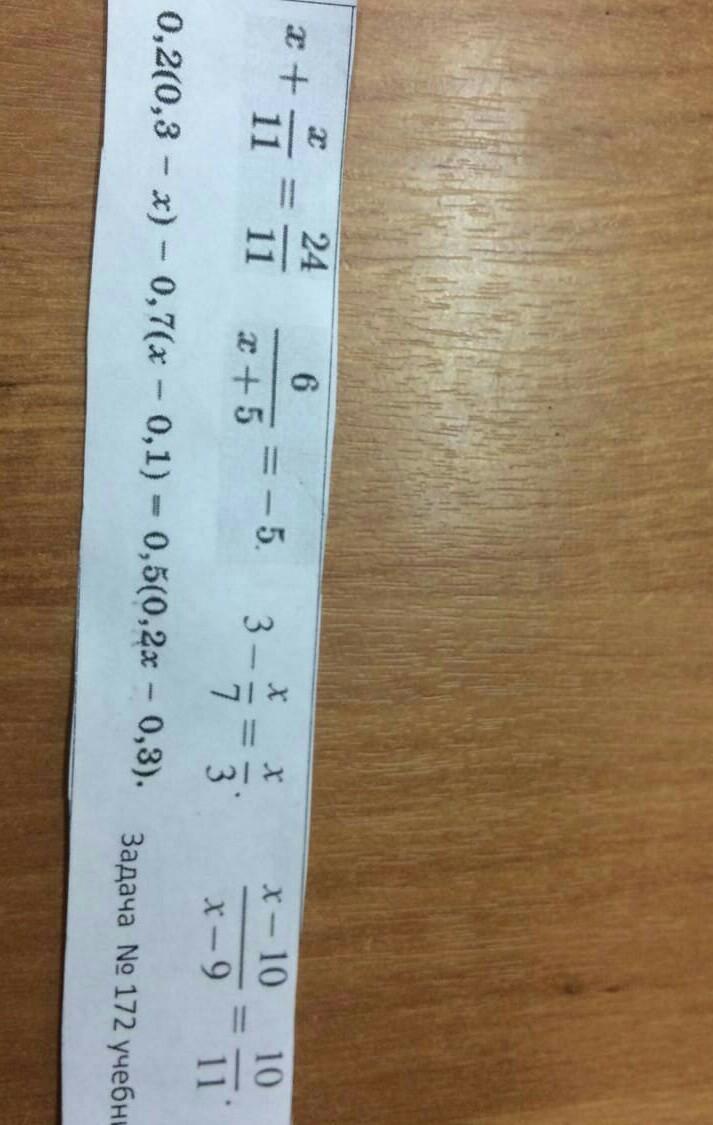 x + x/11 = 24/11   6/(x + 5) = −5.   3 − x/7 = x/3.   (x − 10)/(x − 9) = 10/11.
0,2(0,3 − x) − 0,7(x − 0,1) = 0,5(0,2x − 0,3).   Задача № 172